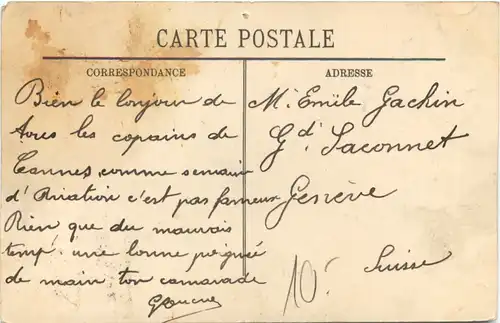 CARTE POSTALE
CORRESPONDANCE
Bien le bonjour de
tous les copains de
Cannes, comme semaine
d'Aviation c'est pas fameux
Rien que du mauvais
temps une bonne poignée
de main ton camarade
ADRESSE
Mr Emile Gachin
Gd Saconnet
Genève
Suisse
10c